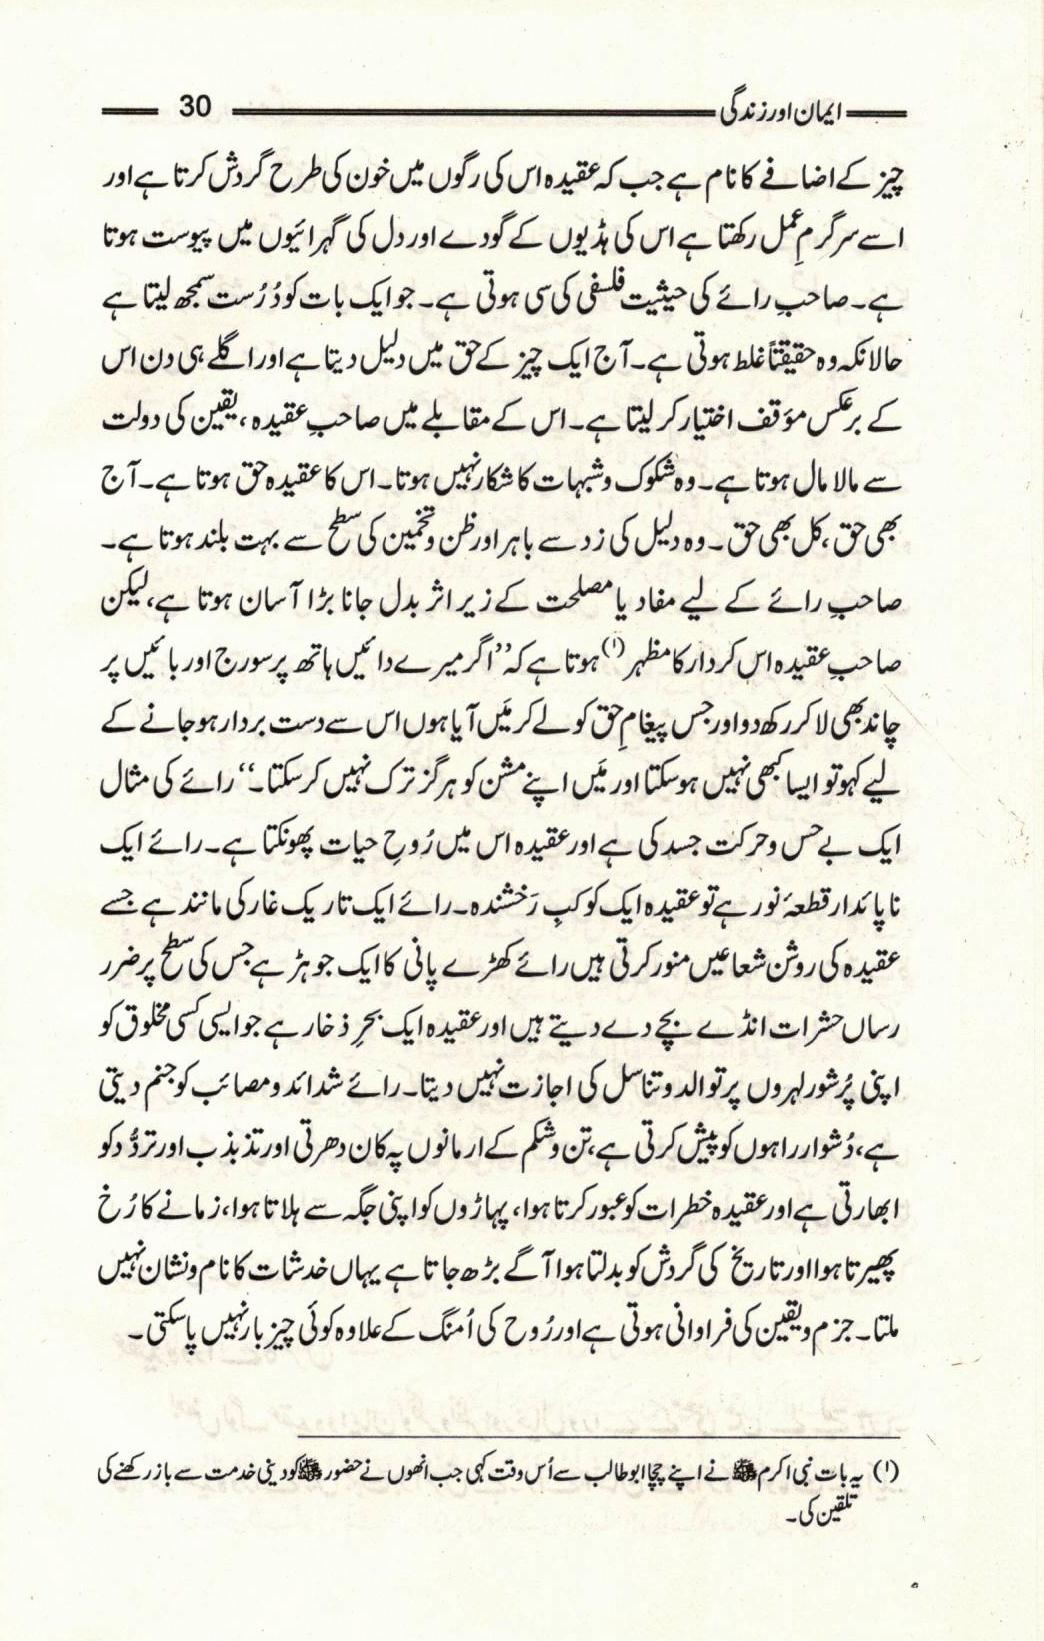 ایمان اور زندگی 30
چیز کے اضافے کا نام ہے جب کہ عقیدہ اس کی رگوں میں خون کی طرح گردش کرتا ہے اور
اسے سرگرمِ عمل رکھتا ہے اس کی ہڈیوں کے گودے اور دل کی گہرائیوں میں پیوست ہوتا
ہے۔ صاحبِ رائے کی حیثیت فلسفی کی سی ہوتی ہے۔ جو ایک بات کو دُرُست سمجھ لیتا ہے
حالانکہ وہ حقیقتاً غلط ہوتی ہے۔ آج ایک چیز کے حق میں دلیل دیتا ہے اور اگلے ہی دن اس
کے برعکس مؤقف اختیار کر لیتا ہے۔ اس کے مقابلے میں صاحبِ عقیدہ، یقین کی دولت
سے مالا مال ہوتا ہے۔ وہ شکوک و شبہات کا شکار نہیں ہوتا۔ اس کا عقیدہ حق ہوتا ہے۔ آج
بھی حق، کل بھی حق۔ وہ دلیل کی زد سے باہر اور ظن و تخمین کی سطح سے بہت بلند ہوتا ہے۔
صاحبِ رائے کے لیے مفاد یا مصلحت کے زیر اثر بدل جانا بڑا آسان ہوتا ہے، لیکن
صاحبِ عقیدہ اس کردار کا مظہر (۱) ہوتا ہے کہ ”اگر میرے دائیں ہاتھ پر سورج اور بائیں پر
چاند بھی لا کر رکھ دو اور جس پیغامِ حق کو لے کر مَیں آیا ہوں اس سے دست بردار ہو جانے کے
لیے کہو تو ایسا کبھی نہیں ہو سکتا اور مَیں اپنے مشن کو ہرگز ترک نہیں کر سکتا۔“ رائے کی مثال
ایک بے حس و حرکت جسد کی ہے اور عقیدہ اس میں رُوحِ حیات پھونکتا ہے۔ رائے ایک
ناپائدار قطعۂ نور ہے تو عقیدہ ایک کوکبِ رَخشندہ۔ رائے ایک تاریک غار کی مانند ہے جسے
عقیدہ کی روشن شعاعیں منور کرتی ہیں رائے کھڑے پانی کا ایک جوہڑ ہے جس کی سطح پر ضرر
رساں حشرات انڈے بچے دے دیتے ہیں اور عقیدہ ایک بحرِ ذخار ہے جو ایسی کسی مخلوق کو
اپنی پُرشور لہروں پر توالد و تناسل کی اجازت نہیں دیتا۔ رائے شدائد و مصائب کو جنم دیتی
ہے، دُشوار راہوں کو پیش کرتی ہے، تن و شکم کے ارمانوں پہ کان دھرتی اور تذبذب اور تردُّد کو
ابھارتی ہے اور عقیدہ خطرات کو عبور کرتا ہوا، پہاڑوں کو اپنی جگہ سے ہلاتا ہوا، زمانے کا رُخ
پھیرتا ہوا اور تاریخ کی گردش کو بدلتا ہوا آگے بڑھ جاتا ہے یہاں خدشات کا نام و نشان نہیں
ملتا۔ جزم و یقین کی فراوانی ہوتی ہے اور رُوح کی اُمنگ کے علاوہ کوئی چیز بار نہیں پا سکتی۔
(۱) یہ بات نبی اکرم ﷺ نے اپنے چچا ابو طالب سے اُس وقت کہی جب انھوں نے حضور ﷺ کو دینی خدمت سے باز رکھنے کی
تلقین کی۔